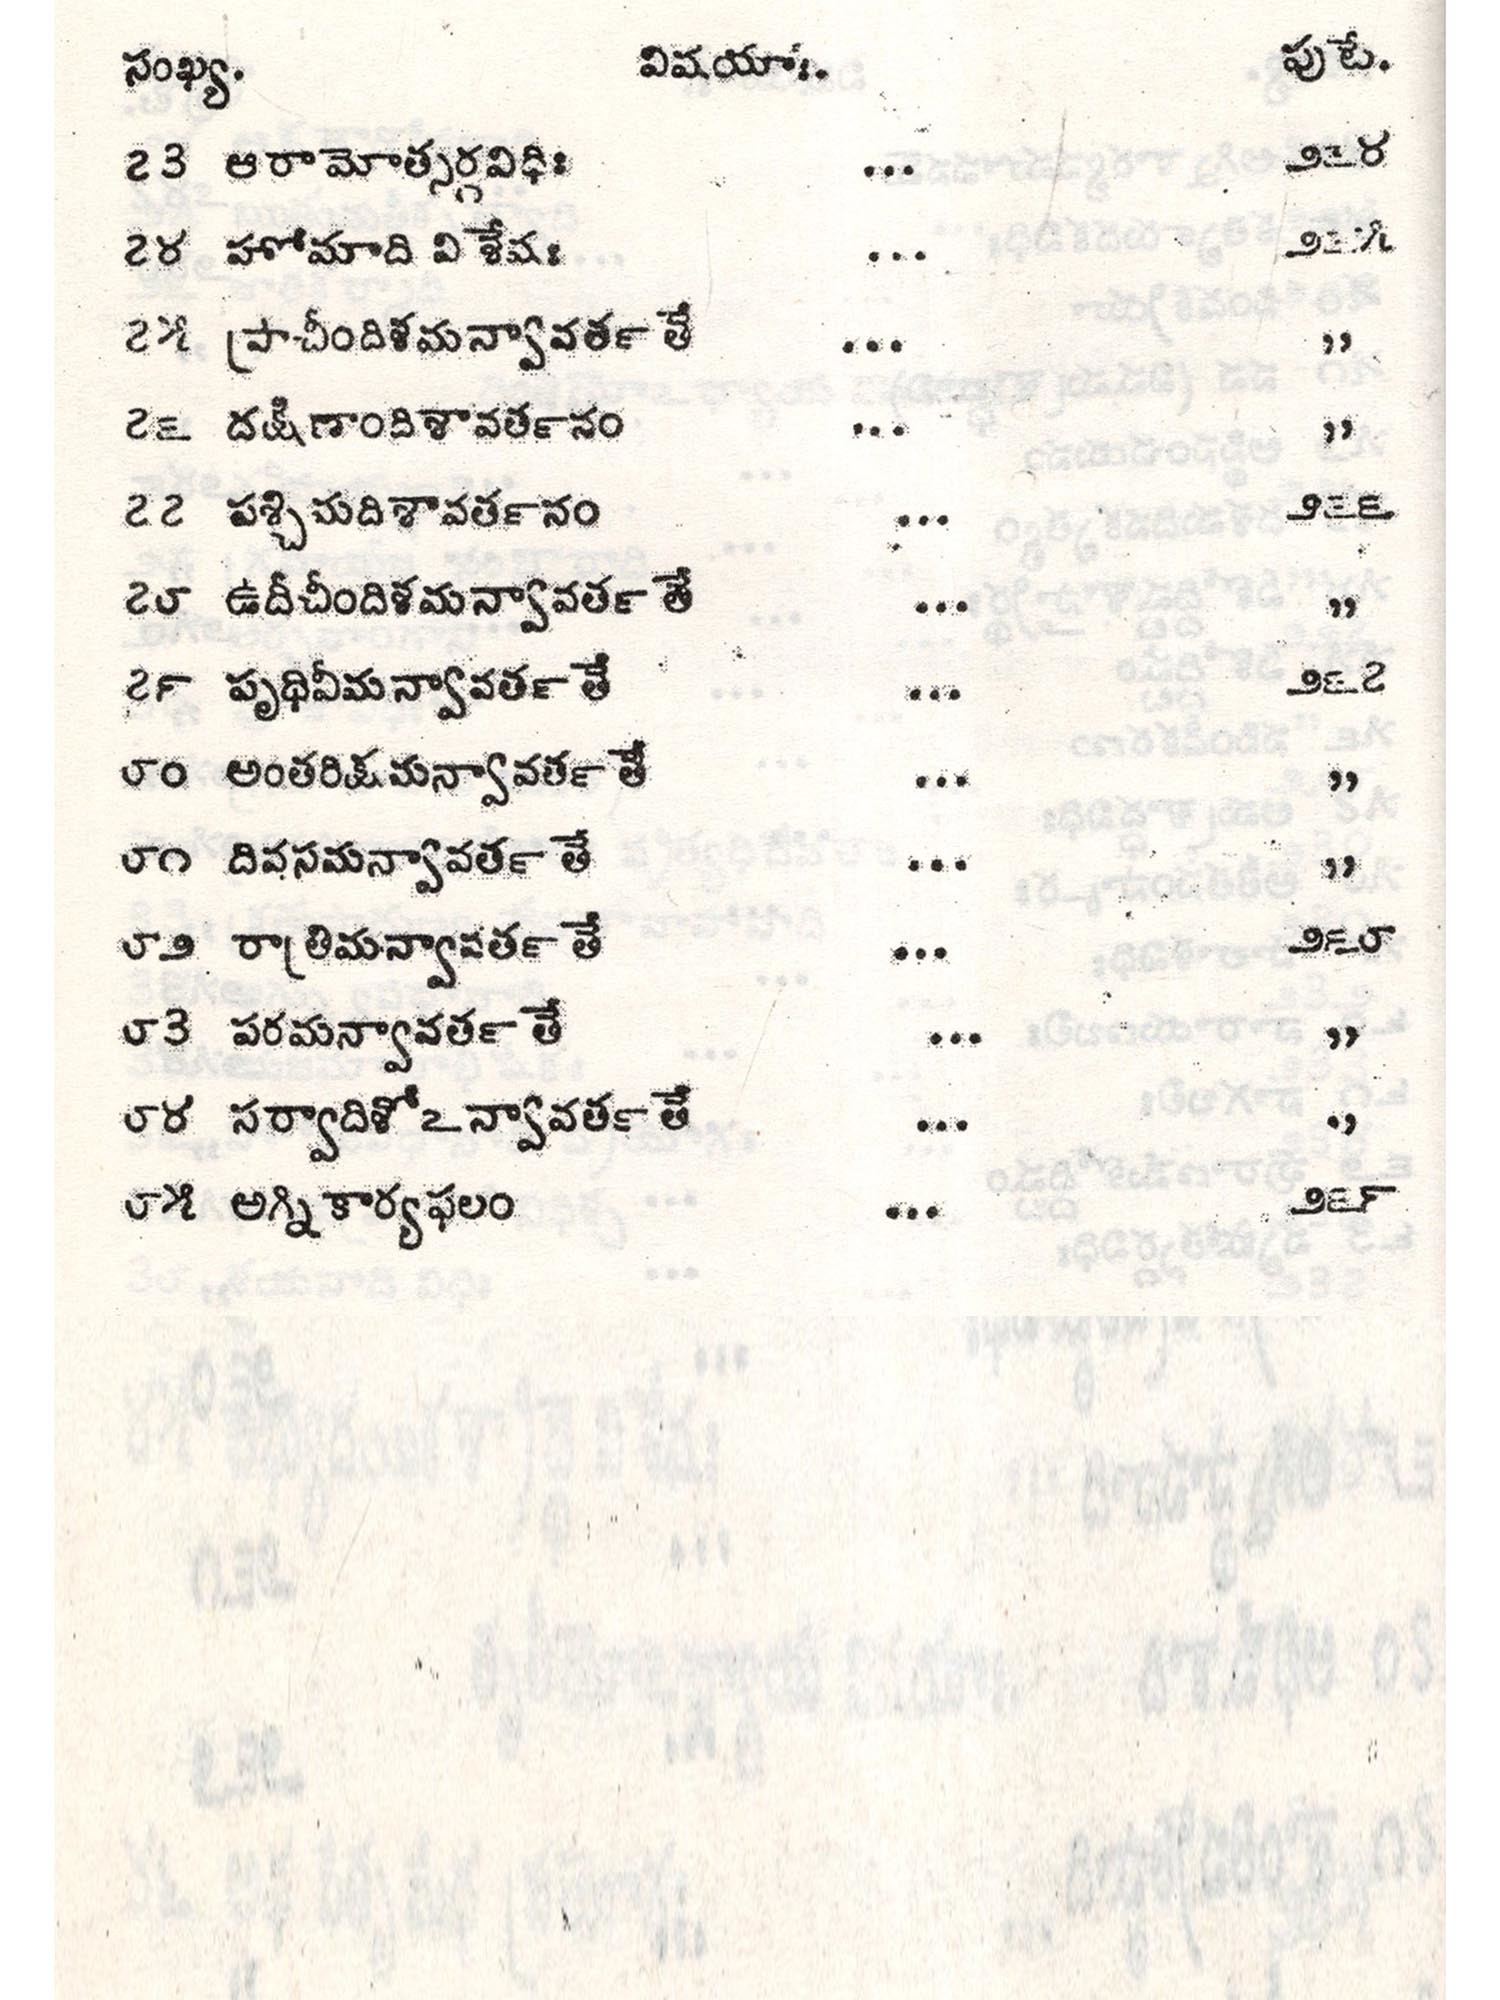 సంఖ్య. విషయాః. పుటే.
౭౩ ఆరామోత్సర్గవిధిః ... ౨౬౪
౭౪ హోమాది విశేషః ... ౨౬౫
౭౫ ప్రాచీందిశమన్వావర్తతే ... ,,
౭౬ దక్షిణాందిశావర్తనం ... ,,
౭౭ పశ్చిమదిశావర్తనం ... ౨౬౬
౭౮ ఉదీచీందిశమన్వావర్తతే ... ,,
౭౯ పృథివీమన్వావర్తతే ... ౨౬౭
౮౦ అంతరిక్షమన్వావర్తతే ... ,,
౮౧ దివసమన్వావర్తతే ... ,,
౮౨ రాత్రిమన్వావర్తతే ... ౨౬౮
౮౩ పరమన్వావర్తతే ... ,,
౮౪ సర్వాదిశోఽన్వావర్తతే ... ,,
౮౫ అగ్నికార్యఫలం ... ౨౬౯